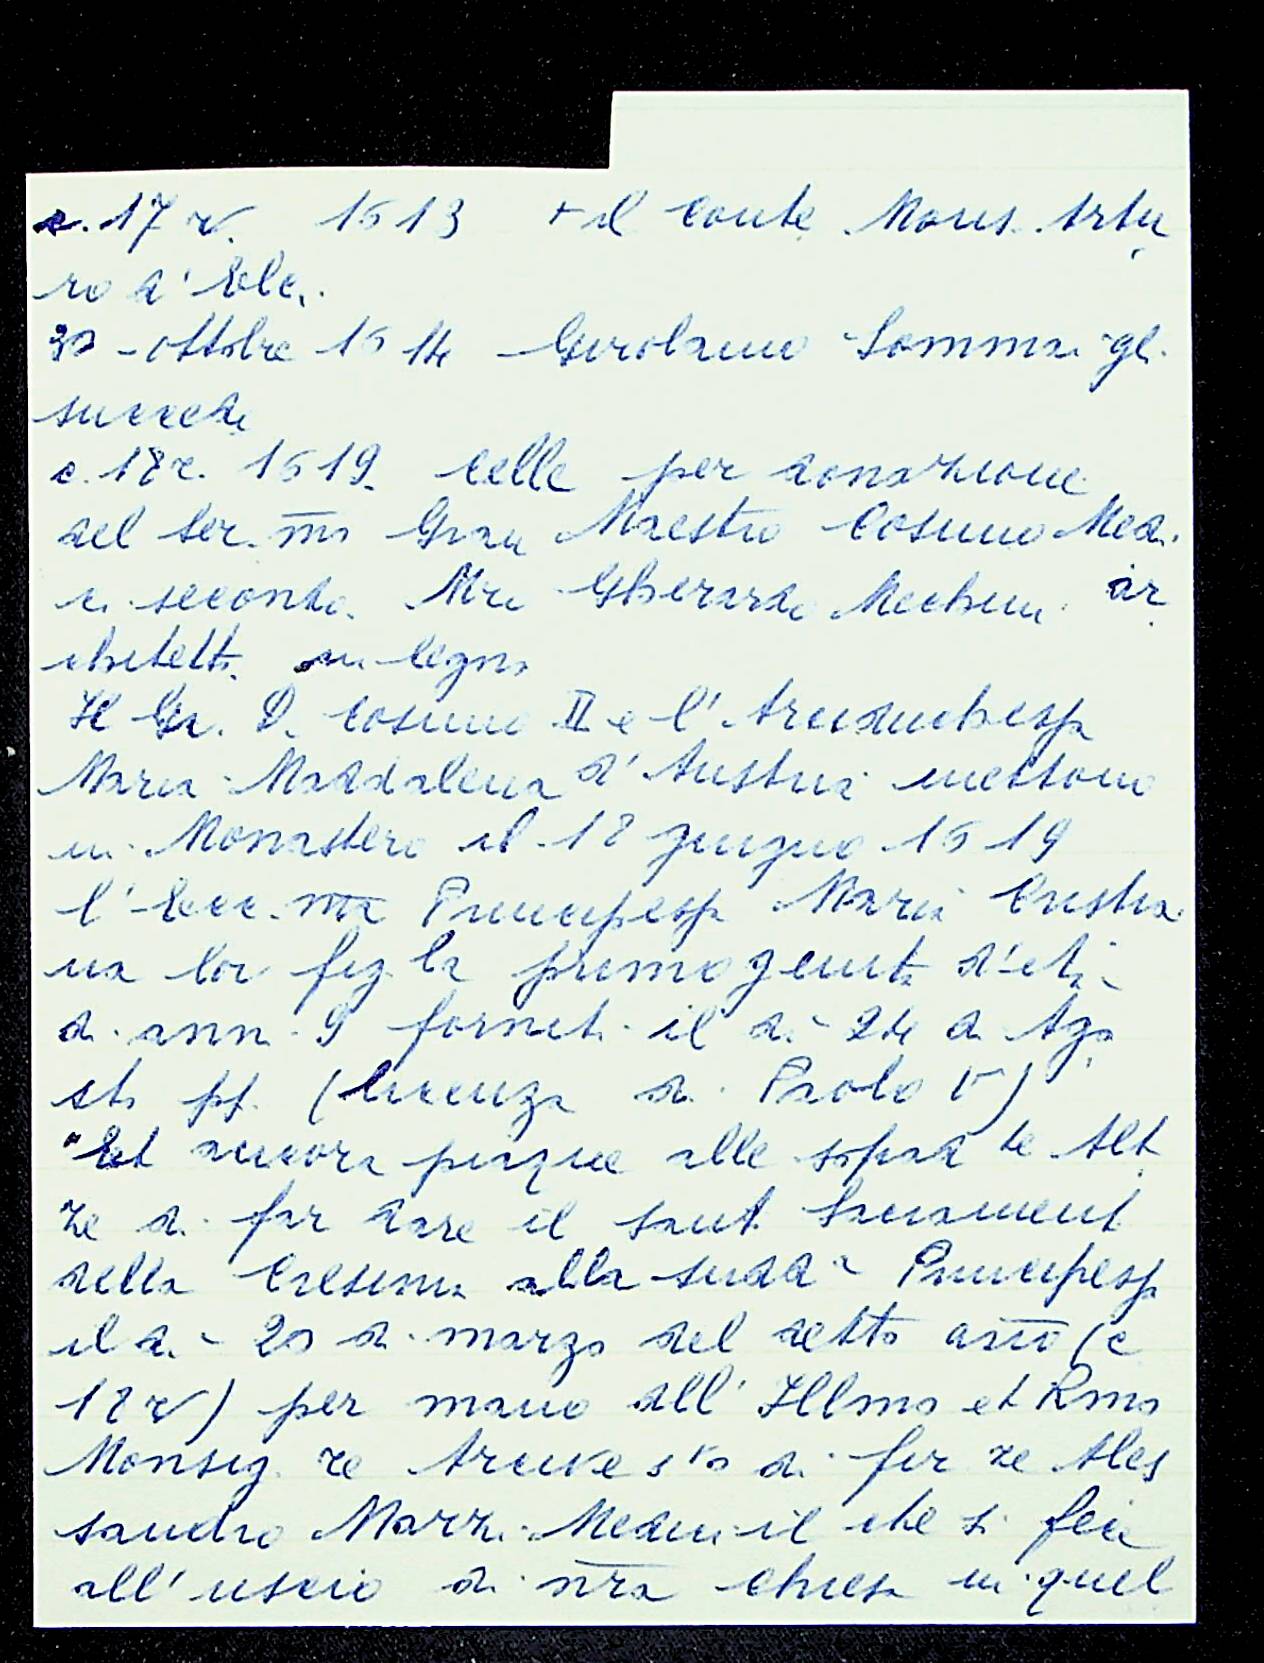 c. 17 v. 1613 + il conte Mons. Artu
ro d'Elci.
30 - ottobre 1614 Girolamo Sommai gli
succede
c. 18 r. 1619. Celle per donazione
del Ser.mo Gran Maestro Cosimo Medi
ci secondo. Mro Gherardo Mechini ar
chitetto in legno
Il Gr. D. Cosimo II e l'Arciduchessa
Maria Maddalena d'Austria mettono
in Monastero il 18 giugno 1619
l'Ecc.ma Principessa Maria Cristia
na lor fig.la primogenita d'età
di anni 9 forniti il dì 24 di Ago
sto pp. (licenza di Paolo V)
"Et ancora piaque alle soprad.te Alt
ze di far dare il santo Sacramento
della Cresima alla sudd.a Principessa
il dì 20 di marzo del detto anno (c
18 v) per mano dall' Illmo et Rmo
Monsig.re Arcives.vo di Fir.ze Ales
sandro Marzi Medici il che si fece
all'uscio di nra chiesa in quel